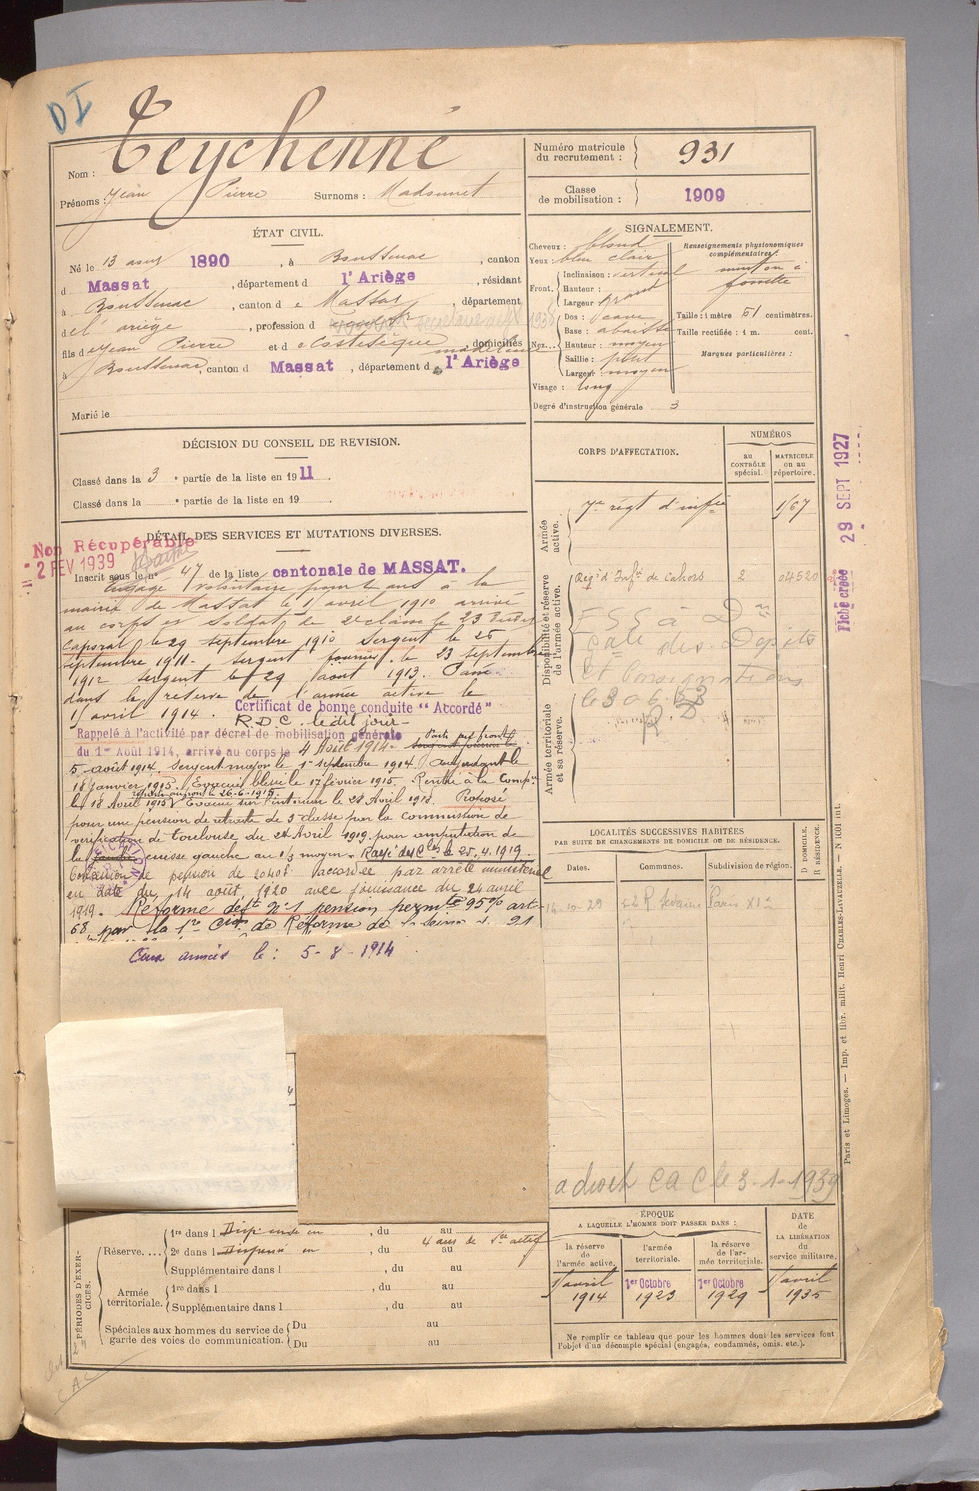 D I
Teychenné
Nom :
Prénoms : Jean Pierre Surnoms : Madounet
Numéro matricule du recrutement : 931
Classe de mobilisation : 1909
ÉTAT CIVIL.
Né le 13 août 1890, à Boussenac, canton
d Massat, département d l'Ariège, résidant
à Boussenac, canton d e Massat, département
d e l'ariège, profession d
fils d e Jean Pierre et d e domiciliés
à Boussenac, canton d Massat, département d l'Ariège
Marié le
SIGNALEMENT.
Cheveux : blond
Yeux : bleu clair
Front. Inclinaison : vertical
Hauteur :
Largeur grand
Nez. Dos : cave
Base : abaissée
Hauteur : moyen
Saillie : petit
Largeur moyen
Visage : long
Degré d'instruction générale 3
Renseignements physionomiques complémentaires :
menton à fossette
Taille : 1 mètre 61 centimètres.
Taille rectifiée : 1 m. cent.
Marques particulières :
DÉCISION DU CONSEIL DE REVISION.
Classé dans la 3e partie de la liste en 1911
Classé dans la e partie de la liste en 19
DÉTAIL DES SERVICES ET MUTATIONS DIVERSES.
Non Récupérable
2 FEV 1939
Inscrit sous le n° 47 de la liste cantonale de MASSAT.
Engagé Volontaire pour 4 ans à la
mairie de Massat le 1er avril 1910 arrivé
au corps et Soldat de 2e classe le 23
Caporal le 29 septembre 1910 Sergent le 25
septembre 1911. sergent fourrier le 23 septembre
1912 sergent le 29 août 1913. Passé
dans la réserve de l'armée active le
1er avril 1914. Certificat de bonne conduite "Accordé"
R.D.C. le dit jour
Rappelé à l'activité par décret de mobilisation générale
du 1er Août 1914, arrivé au corps le 4 Août 1914
5 août 1914. Sergent major le 1er septembre 1914. Adjudant le
18 janvier 1915. Évacué blessé le 17 février 1915. Rentré à la Compie
le 18 Avril 1915. Évacué sur l'intérieur le 28 Avril 1918. Proposé
pour une pension de retraite de 3e classe par la commission de
vérification de Toulouse du 24 Avril 1919 pour amputation de
la jambe cuisse gauche au 1/3 moyen. Rayé des Cles le 25.4.1919.
Concession de pension de accordée par arrêté ministériel
en date du 14 août 1920 avec jouissance du 24 avril
1919. Réformé déft N°1 pension permte 95% art
68 par la 1re Con de Réforme de la Seine
Aux armées le : 5-8-1914
CORPS D'AFFECTATION.
NUMÉROS
au CONTRÔLE spécial.
MATRICULE ou au répertoire.
Armée active.
7e régt d'infie
1167
Disponibilité et réserve de l'armée active.
Rég't d'Infie de Cahors 2 04520
des Dépôts
et Consignations
le 30.6.
Armée territoriale et sa réserve.
Fiche créée 29 SEPT 1927
LOCALITÉS SUCCESSIVES HABITÉES
PAR SUITE DE CHANGEMENTS DE DOMICILE OU DE RÉSIDENCE.
Dates. Communes. Subdivision de région. D DOMICILE. R RÉSIDENCE.
14-10-29 Paris XI
a droit CAC le 3-1-1939
Paris et Limoges. — Imp. et libr. milit. Henri CHARLES-LAVAUZELLE. — N 1C01 int.
PÉRIODES D'EXERCICES.
Réserve.... 1re dans l , du au
2e dans l , du au
4 ans de Sce actif
Supplémentaire dans l , du au
Armée territoriale. 1re dans l , du au
Supplémentaire dans l , du au
Spéciales aux hommes du service de garde des voies de communication. Du au
Du au
ÉPOQUE
A LAQUELLE L'HOMME DOIT PASSER DANS :
la réserve de l'armée active. l'armée territoriale. la réserve de l'armée territoriale.
DATE de LA LIBÉRATION du service militaire.
1er avril 1914
1er Octobre 1923
1er Octobre 1929
1er avril 1935
Ne remplir ce tableau que pour les hommes dont les services font
l'objet d'un décompte spécial (engagés, condamnés, omis, etc.).
CAC